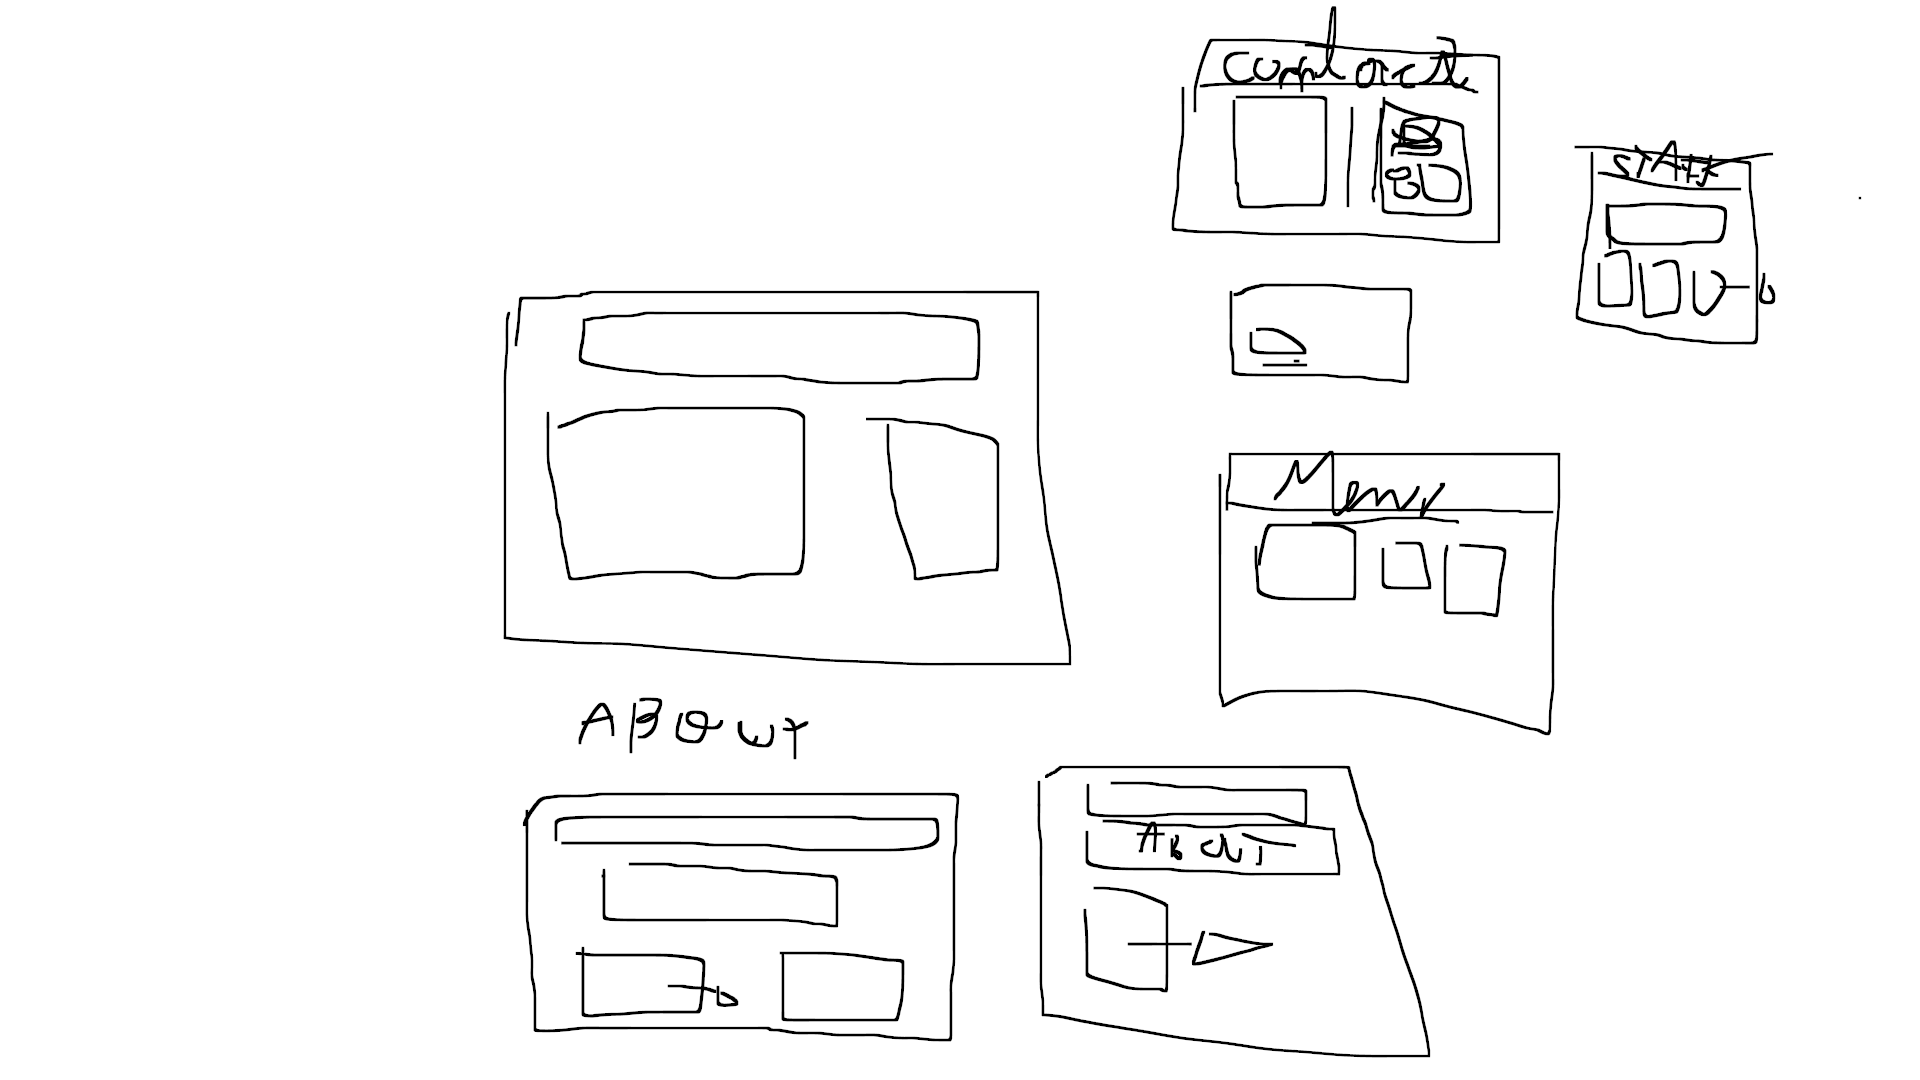 contact
STAFF
Menu
ABOUT
ABOUT